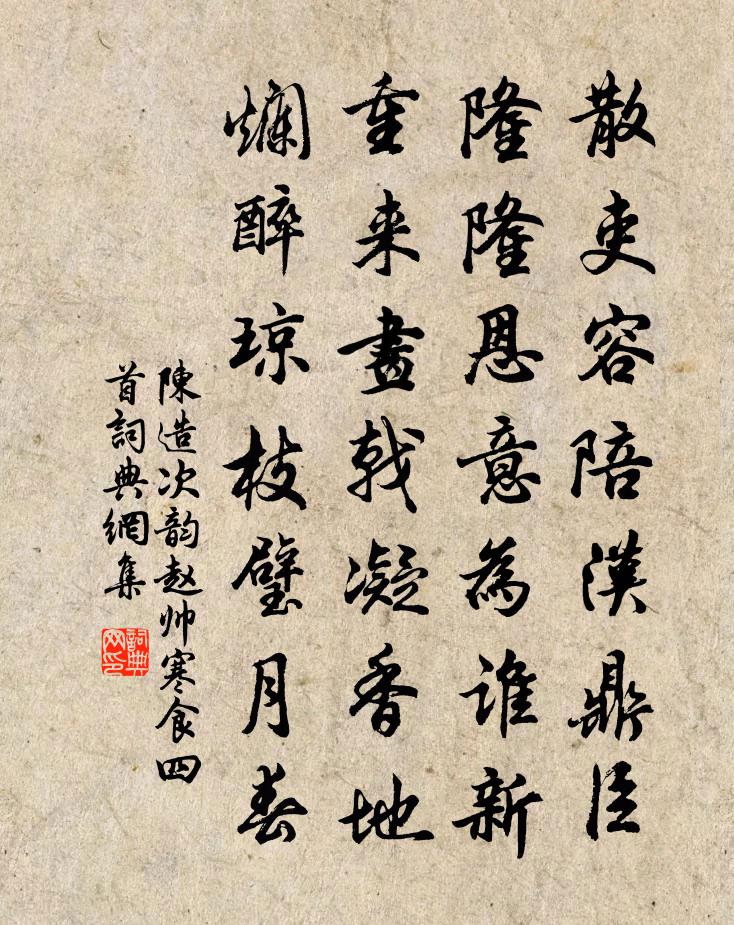 散吏容陪漢鼎臣
隆隆恩意為谁新
重来畫戟凝香地
爛醉琼枝璧月春
陳造次韵赵帅寒食四
首詞典網集
詞典网印